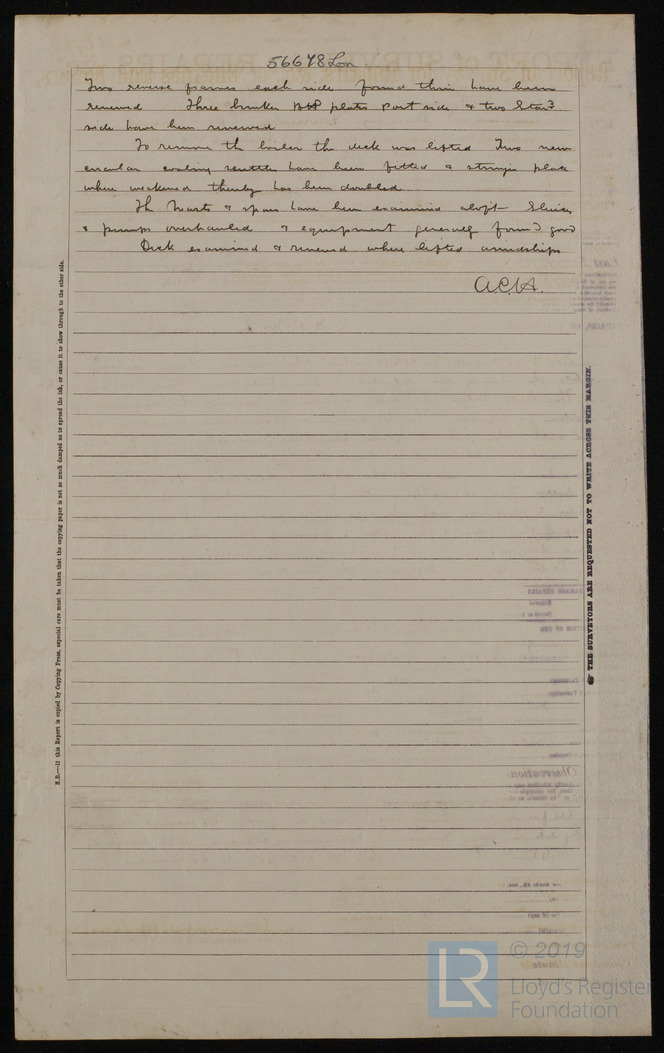 56678 Lon
Two reverse frames each side found thin have been
renewed Three bunker BHD plates port side & two Starb
side have been renewed
To remove the boiler the deck was lifted Two new
circular coaling scuttles have been fitted & stringer plate
where weakened thereby has been doubled.
The Masts & spars have been examined aloft Sluices
& pumps overhauled & equipment generally found good
Deck examined & renewed where lifted amidships
A.C.H.
N.B.—If this Report is copied by Copying Press, especial care must be taken that the copying paper is not so much damped as to spread the ink, or cause it to show through to the other side.
THE SURVEYORS ARE REQUESTED NOT TO WRITE ACROSS THIS MARGIN.
© 2019
LR
Lloyd's Register
Foundation